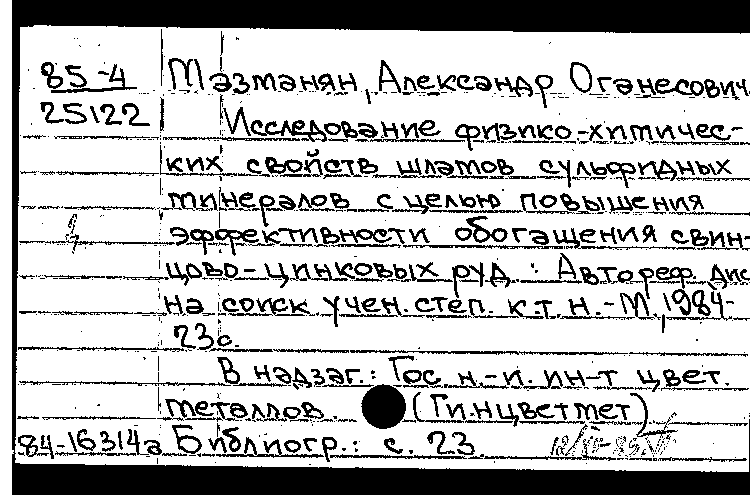 85-4 Мазманян, Александр Оганесович.
25122 Исследование физико-химичес-
ких свойств шламов сульфидных
минералов с целью повышения
эффективности обогащения свин-
цово-цинковых руд : Автореф. дис
на соиск учен. степ. к.т.н. - М., 1984-
23с.
В надзаг.: Гос н.-и. ин-т цвет.
металлов. (Гинцветмет)
84-16314а Библиогр.: с. 23.